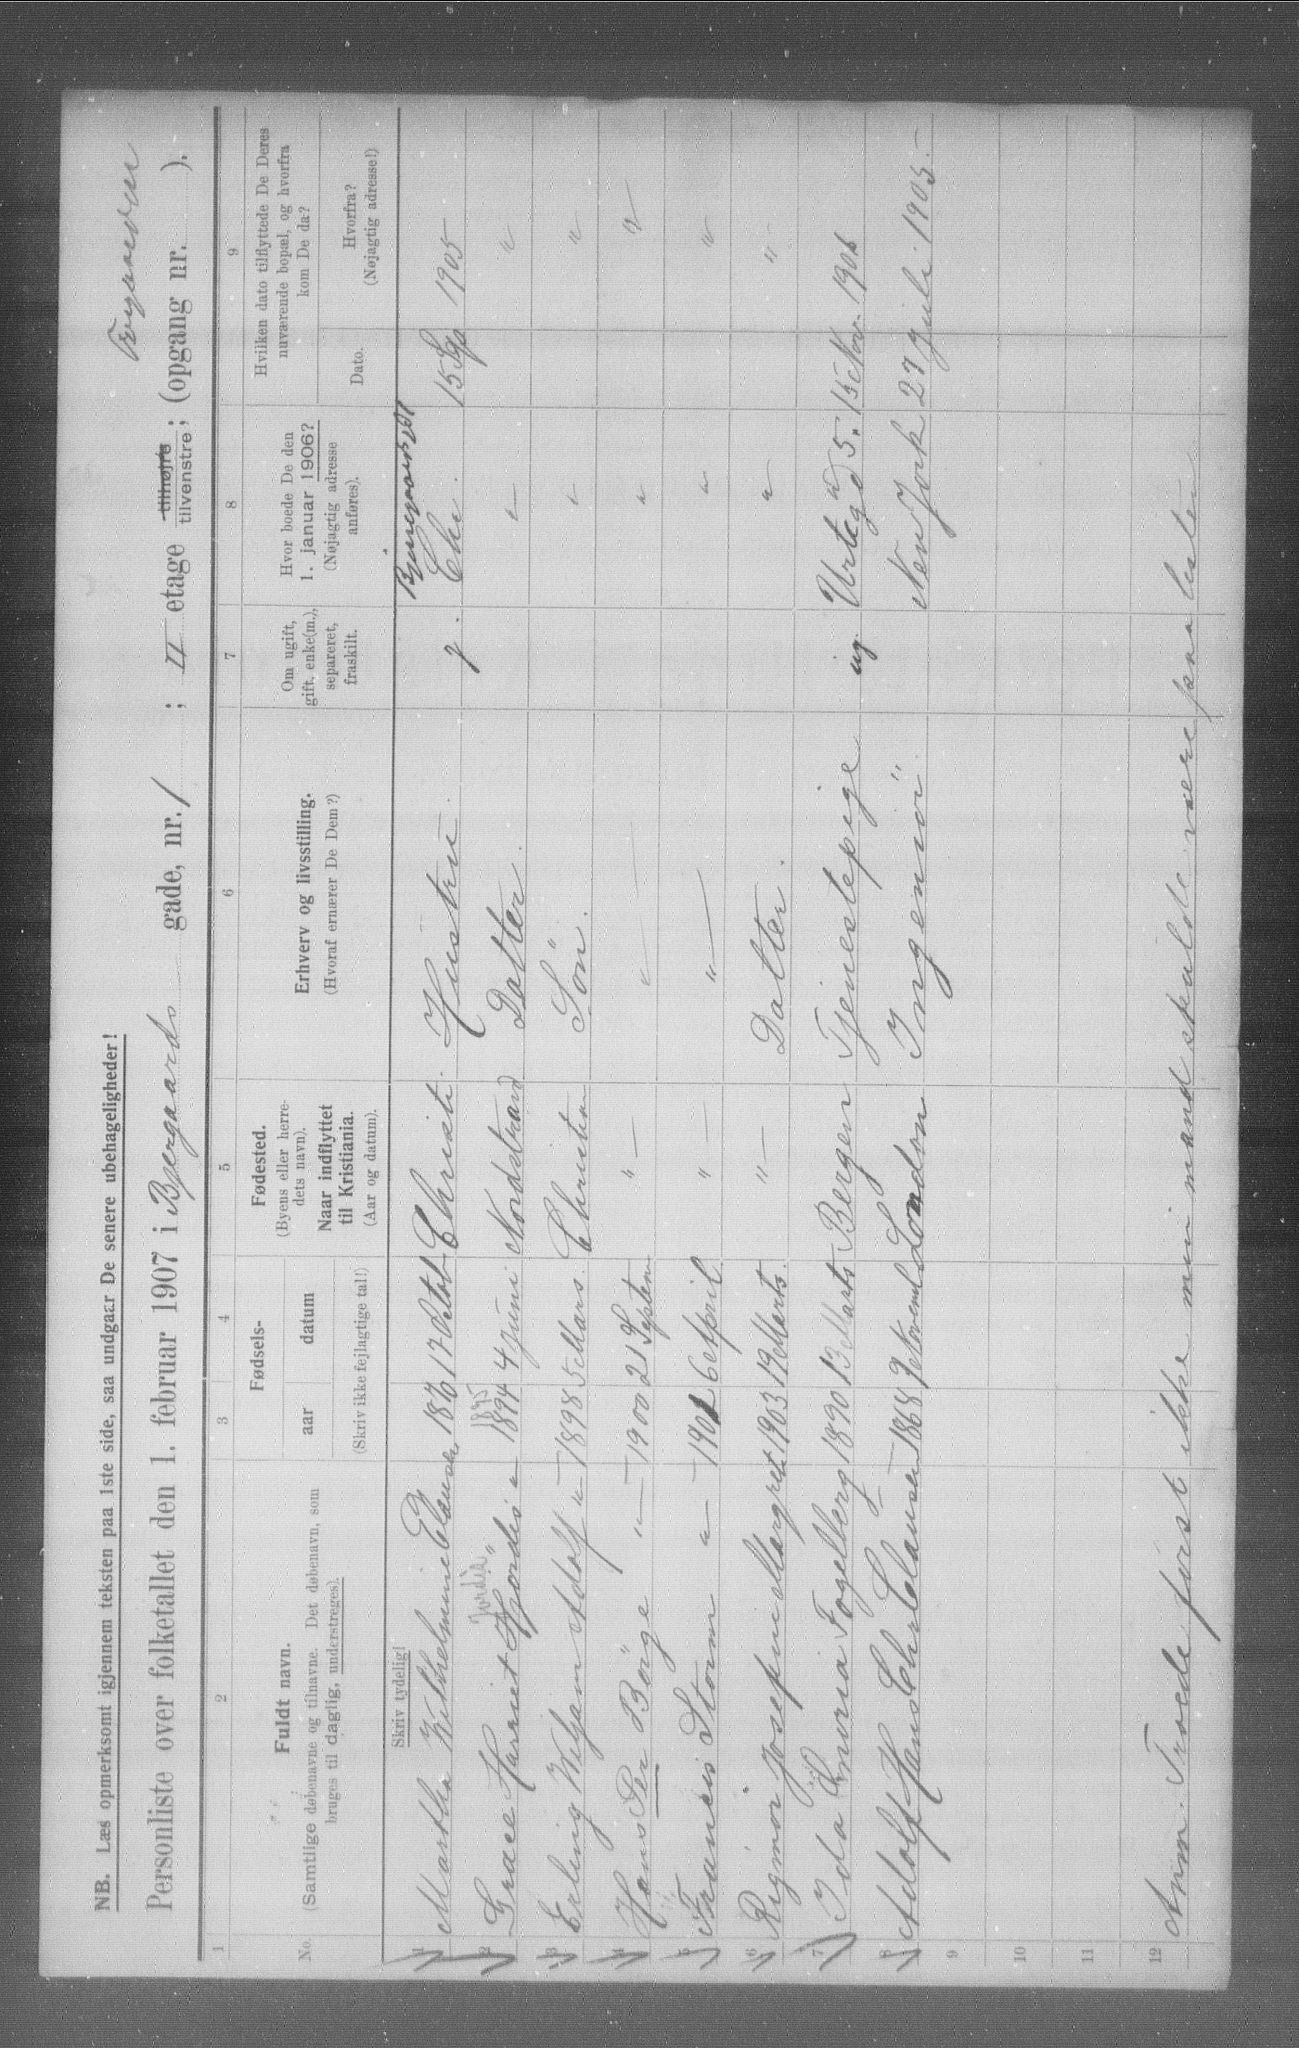 NB. Læs opmerksomt igjennem teksten paa 1ste side, saa undgaar De senere ubehageligheder!
Personliste over folketallet den 1. februar 1907 i Bjergaards gade, nr. 1 ; II etage tilhøjre tilvenstre; (opgang nr. ).
1 2 3 4 5 6 7 8 9
No.
Fuldt navn.
(Samtlige døbenavne og tilnavne. Det døbenavn, som
bruges til daglig, understreges).
Fødsels-
aar datum
(Skriv ikke fejlagtige tal!)
Fødested.
(Byens eller herre-
dets navn).
Naar indflyttet
til Kristiania.
(Aar og datum).
Erhverv og livsstilling.
(Hvoraf ernærer De Dem?)
Om ugift,
gift, enke(m.),
separeret,
fraskilt.
Hvor boede De den
1. januar 1906?
(Nøjagtig adresse
anføres).
Hvilken dato tilflyttede De Deres
nuværende bopæl, og hvorfra
kom De da?
Dato.
Hvorfra?
(Nøjagtig adresse!)
Skriv tydelig!
1 Martha Vilhelmine Clausen 1876 17 Oktob Christi. Hustru g. Chr. 15 Sep 1905
Jordis 1895
2 Grace Harriet Hjördis " 1894 4 Juni Nordstrand Datter. " "
3 Erling Viljam Adolf " 1898 5 Mars. Christian Sön. " "
4 Hans Per Börge " 1900 21 Septem " " " "
5 Francis Storm " 1901 6 April " " " "
6 Rigmor Josefine Margrete 1903 19 Marts " Datter. " "
7 Ida Fogelberg 1890 13 Marts Bergen Tjenestepige ug. Urtegd 5. 15 Nov. 1906
8 Adolf Hans Chr Clausen 1868 9 Novemb London Ingeniör. New York 27 Juli 1905.
9
10
11
12
Anm. Troede först ikke min mand skulde være paa listen